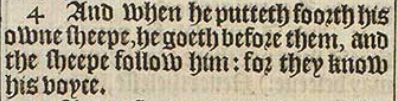 4 And when he putteth foorth his
owne sheepe, he goeth before them, and
the sheepe follow him: for they know
his voyce.